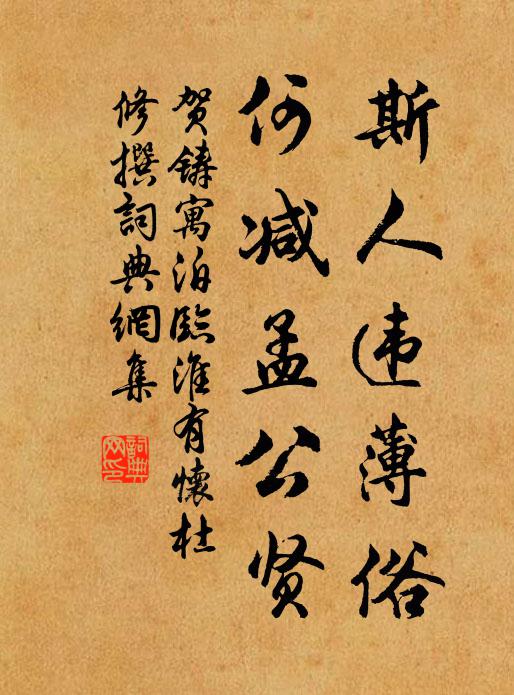 斯人违薄俗
何减孟公贤
贺铸寓泊临淮有怀杜
修撰词典网集
词典网印